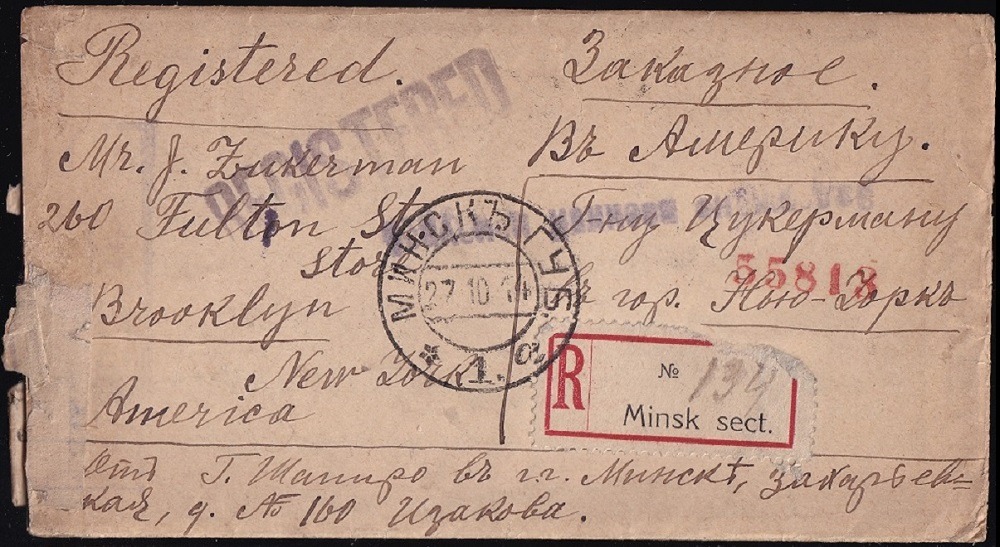 Registered.
REGISTERED
Заказное.
Mr. J. Zukerman
Въ Америку.
260 Fulton
Г-ну Цукерману
55818
гор. Нью-Іоркъ
Brooklyn
New York
America
МИНСКЪ ГУБ.
27 10 14
* 1.
R
№ 134
Minsk sect.
Отъ Г. Шапиро въ г. Минскѣ, Захарьев=
кая, д. № 160 Изакова.